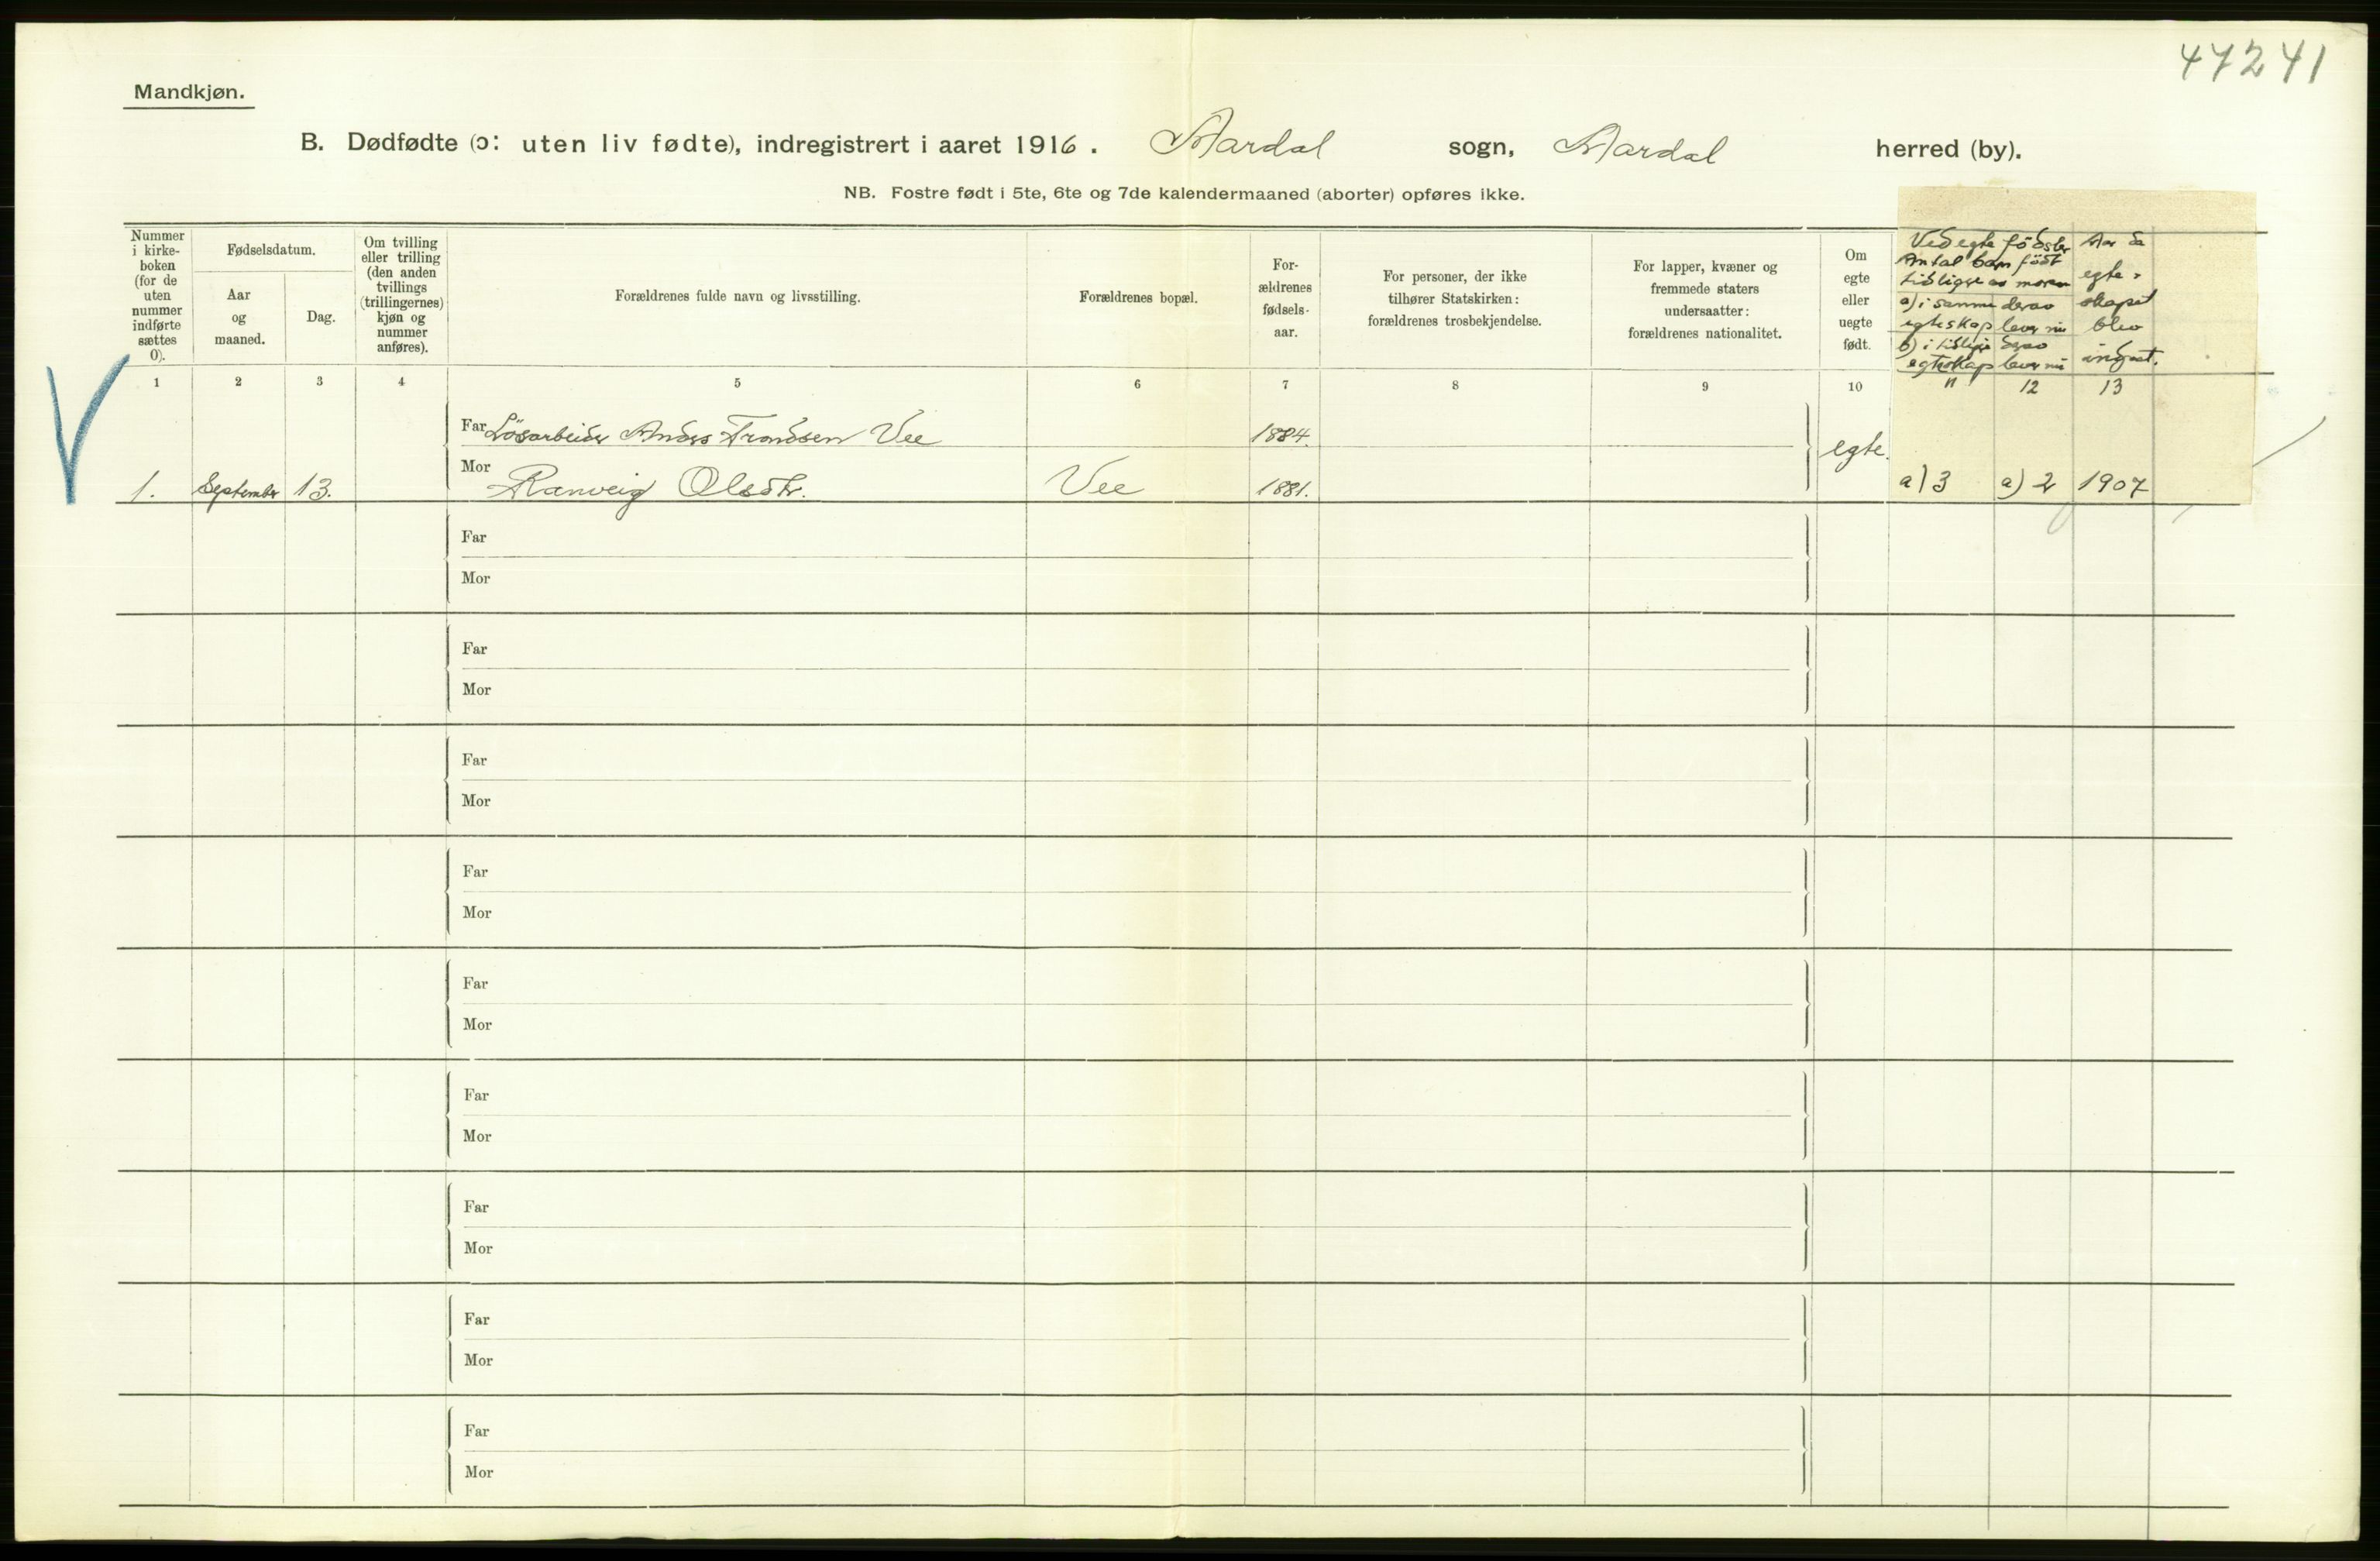 47241
Mandkjøn.
B. Dødfødte (ɔ: uten liv fødte), indregistrert i aaret 1916. Aardal sogn, Aardal herred (by).
NB. Fostre født i 5te, 6te og 7de kalendermaaned (aborter) opføres ikke.
Nummer
i kirke-
boken
(for de
uten
nummer
indførte
sættes
0).
Fødselsdatum.
Aar
og
maaned.
Dag.
Om tvilling
eller trilling
(den anden
tvillings
(trillingernes)
kjøn og
nummer
anføres).
Forældrenes fulde navn og livsstilling.
Forældrenes bopæl.
For-
ældrenes
fødsels-
aar.
For personer, der ikke
tilhører Statskirken:
forældrenes trosbekjendelse.
For lapper, kvæner og
fremmede staters
undersaatter:
forældrenes nationalitet.
Om
egte
eller
uegte
født.
Ved egte födsler
Antal barn födt
tidligere av moren
a) i samme egteskap
derav lever nu
b) i tidligere egteskap
derav lever nu
Aar da
egte-
skapet
blev
indgaat.
1 2 3 4 5 6 7 8 9 10 11 12 13
Far Lösarbeider Anders Trondsen Vee 1884.
egte.
1. September 13. Mor Ranveig Olsdtr. Vee 1881. a) 3 a) 2 1907
Far
Mor
Far
Mor
Far
Mor
Far
Mor
Far
Mor
Far
Mor
Far
Mor
Far
Mor
Far
Mor